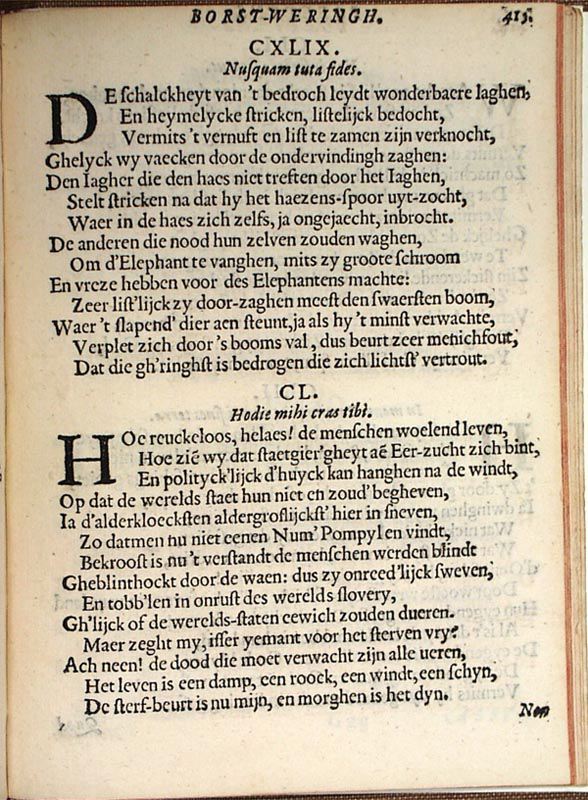 BORST-WERINGH. 415.
CXLIX.
Nusquam tuta fides.
DE schalckheyt van 't bedroch leydt wonderbaere laghen,
En heymelycke stricken, listelijck bedocht,
Vermits 't vernuft en list te zamen zijn verknocht,
Ghelyck wy vaecken door de ondervindingh zaghen:
Den Iagher die den haes niet treften door het Iaghen,
Stelt stricken na dat hy het haezens-spoor uyt-zocht,
Waer in de haes zich zelfs, ja ongejaecht, inbrocht.
De anderen die nood hun zelven zouden waghen,
Om d'Elephant te vanghen, mits zy groote schroom
En vreze hebben voor des Elephantens machte:
Zeer list'lijck zy door-zaghen meest den swaersten boom,
Waer 't slapend' dier aen steunt, ja als hy 't minst verwachte,
Verplet zich door 's booms val, dus beurt zeer menichfout,
Dat die gh'ringhst is bedrogen die zich lichtst' vertrout.
CL.
Hodie mihi cras tibi.
HOe reuckeloos, helaes! de menschen woelend leven,
Hoe ziē wy dat staetgier'gheyt aē Eer-zucht zich bint,
En polityck'lijck d'huyck kan hanghen na de windt,
Op dat de werelds staet hun niet en zoud' begheven,
Ia d'alderkloecksten aldergroslijckst' hier in sneven,
Zo datmen nu niet eenen Num' Pompyl en vindt,
Bekroost is nu 't verstandt de menschen werden blindt
Gheblinthockt door de waen: dus zy onreed'lijck sweven,
En tobb'len in onrust des werelds slovery,
Gh'lijck of de werelds-staten eewich zouden dueren.
Maer zeght my, isser yemant voor het sterven vry?
Ach neen! de dood die moet verwacht zijn alle ueren,
Het leven is een damp, een roock, een windt, een schyn,
De sterf-beurt is nu mijn, en morghen is het dyn.
Non